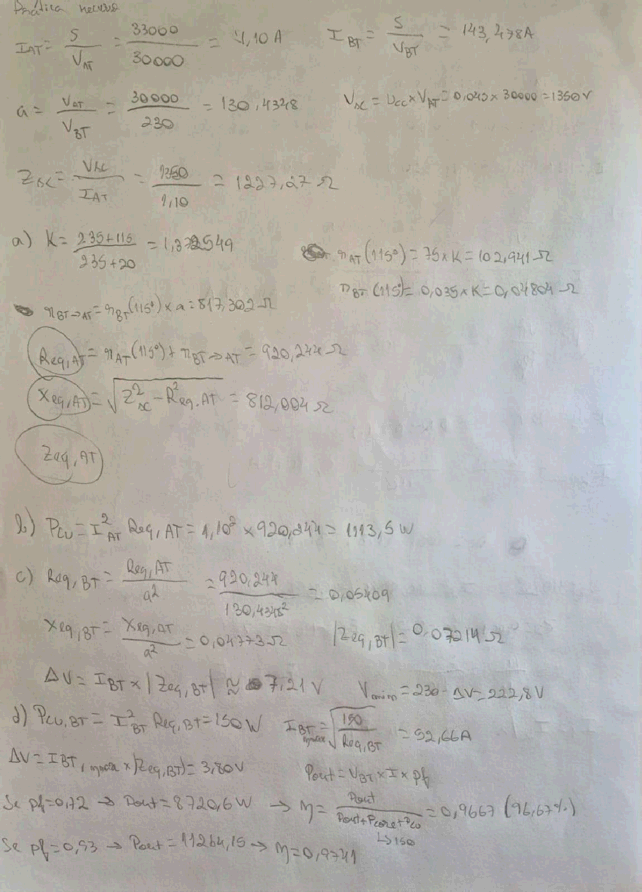 I_AT = S / V_AT = 33000 / 30000 = 1,10 A I_BT = S / V_BT = 143,478A
a = V_AT / V_BT = 30000 / 230 = 130,4348 V_sc = U_cc × V_AT = 0,045 × 30000 = 1350 V
Z_sc = V_sc / I_AT = 1350 / 1,10 = 1227,27 Ω
a) K = 235+115 / 235+20 = 1,372549 r_AT (115°) = 75 × K = 102,941 Ω
r_BT (115°) = 0,035 × K = 0,04804 Ω
r_BT→AT = r_BT (115°) × a = 817,302 Ω
Req,AT = r_AT (115°) + r_BT→AT = 920,244 Ω
Xeq,AT = √(Z²_sc − R²eq,AT) = 812,004 Ω
Zeq,AT
b) P_cu = I²_AT Req,AT = 1,10² × 920,244 = 1113,5 W
c) Req,BT = Req,AT / a² = 920,244 / 130,4348² = 0,05409
Xeq,BT = Xeq,AT / a² = 0,04773 Ω |Zeq,BT| = 0,07214 Ω
ΔV = I_BT × |Zeq,BT| ≈ 7,21 V V_min = 230 - ΔV = 222,8V
d) P_cu,BT = I²_BT Req,BT = 150 W I_BT = √(150 / Req,BT) = 52,66A
ΔV = I_BT, × |Zeq,BT| = 3,80V Pout = V_BT × I × pf
Se pf=0,72 → Pout = 8720,6 W → η = Pout / Pout+Pcore+Pcu = 0,9667 (96,67%)
↳ 150
Se pf=0,93 → Pout = 11264,15 → η = 0,9741